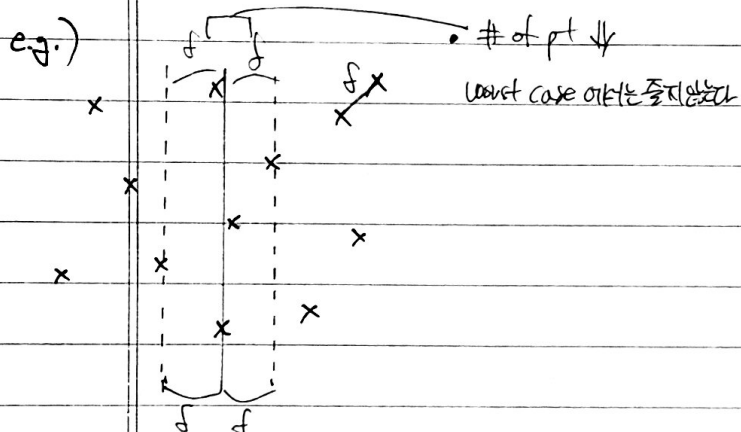 e.g.)
δ δ
• # of pt ⇓
δ
worst case 에서는 줄지않는다
δ δ